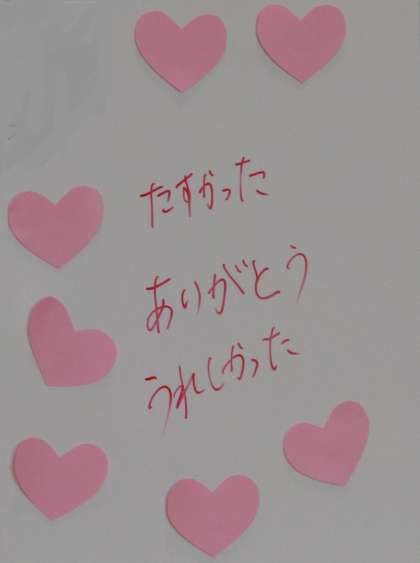 たすかった
ありがとう
うれしかった